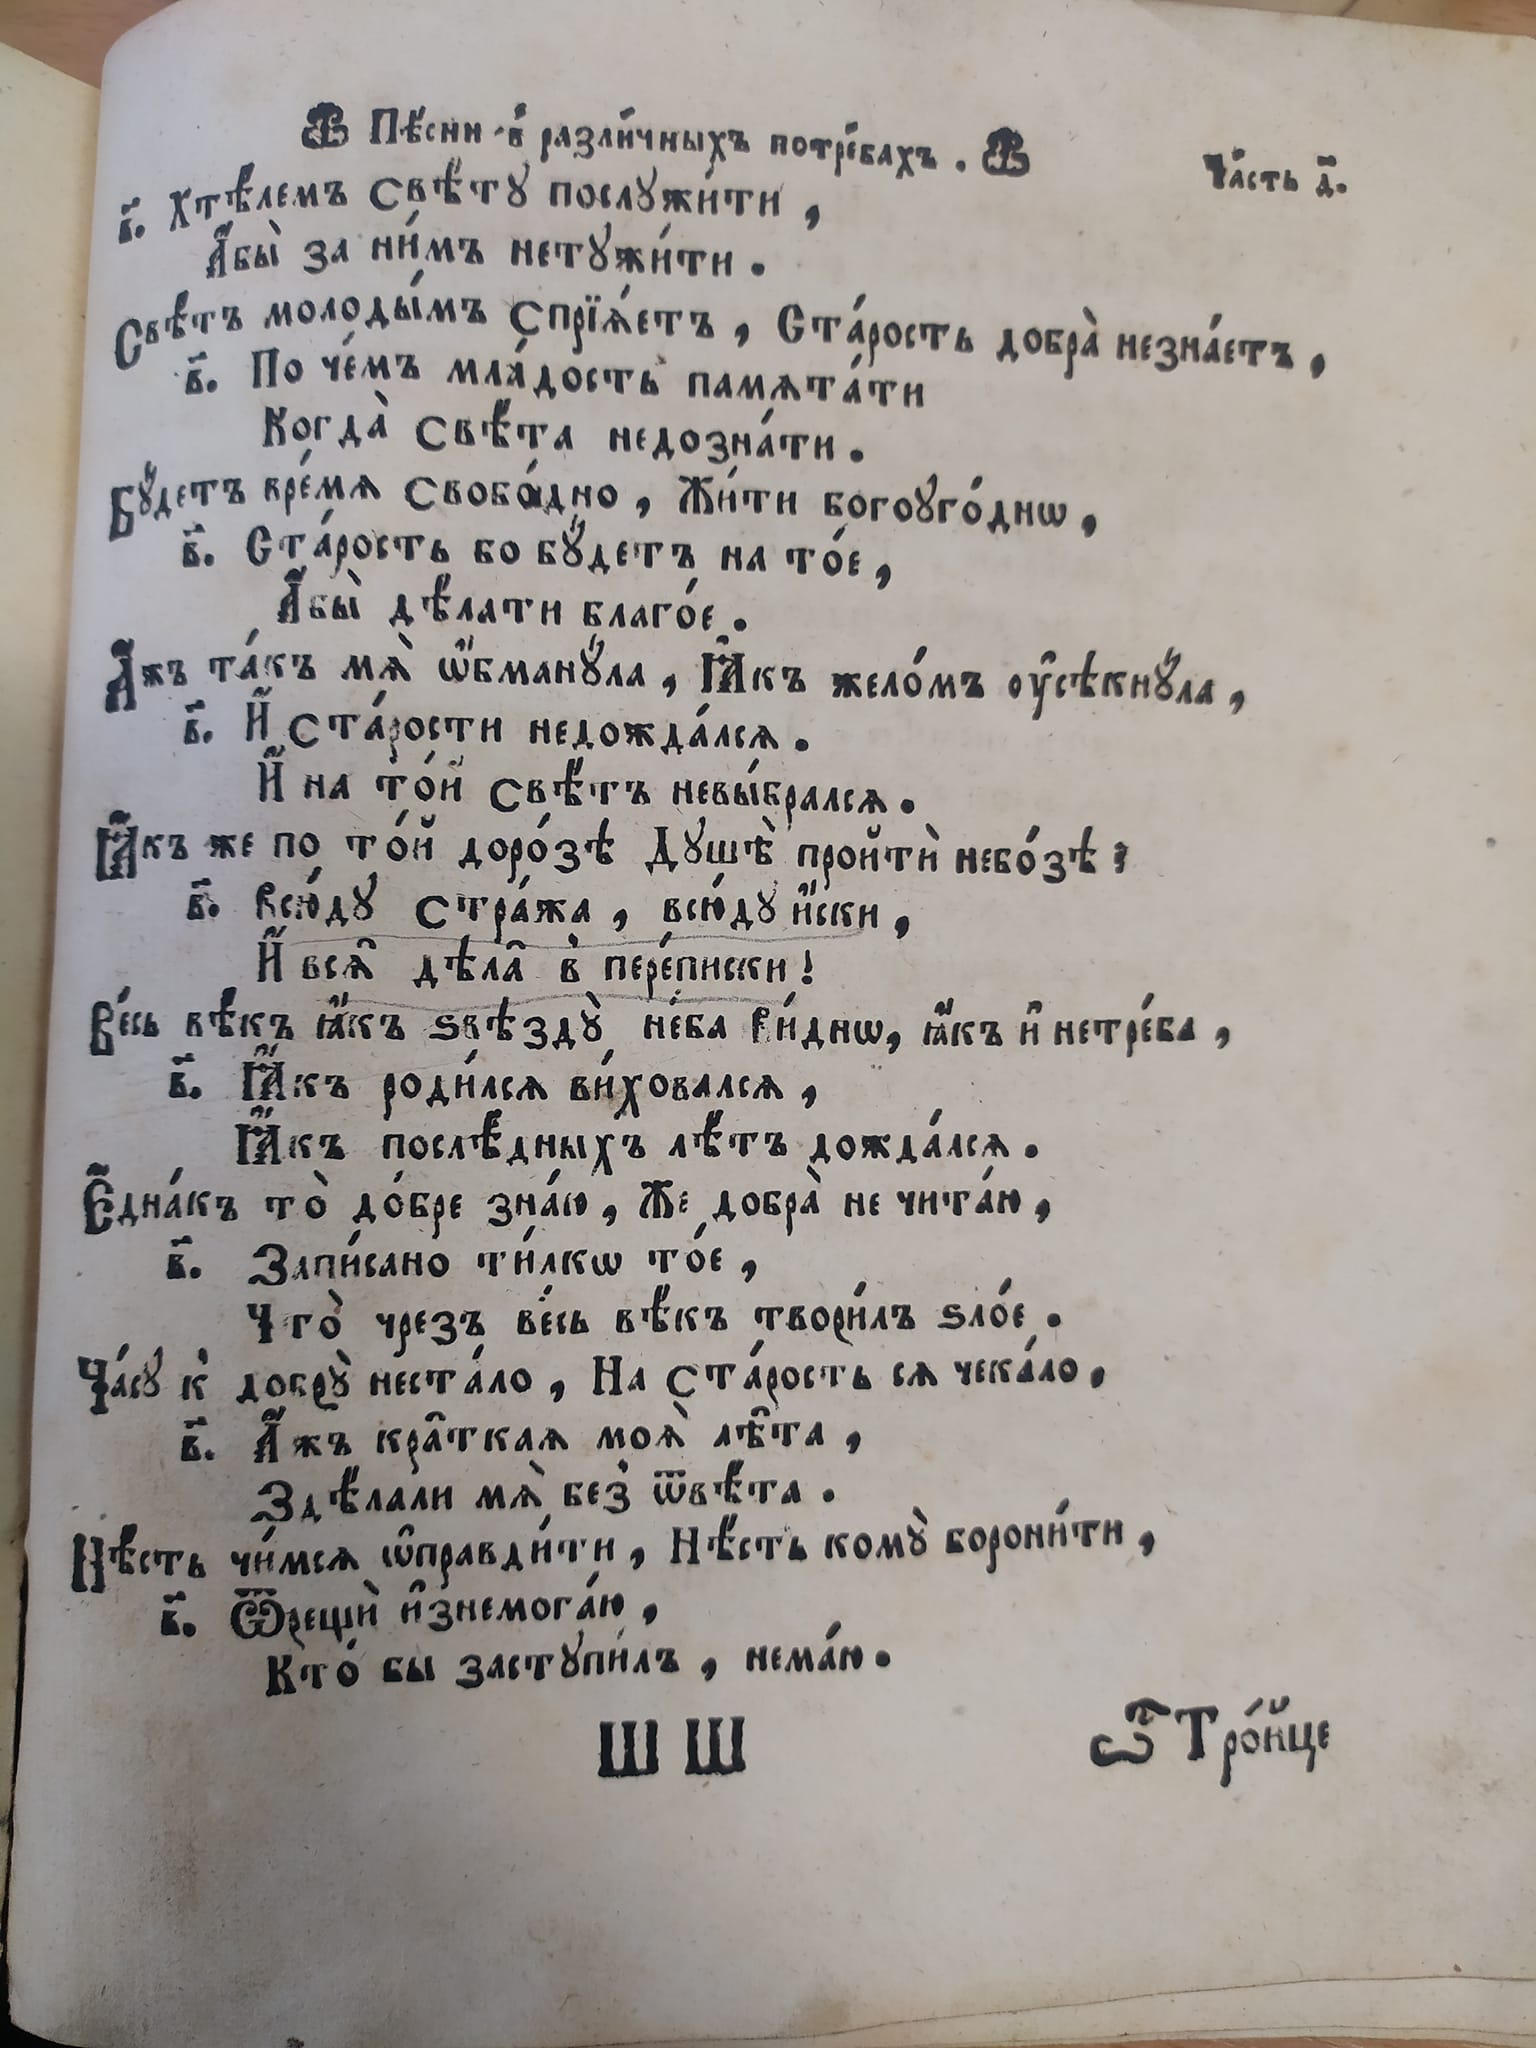 Пѣ́сни в̾ разли́чныхъ потре́бахъ. Ча́сть д҃.
в҃. Хтѣ́лемъ Свѣ́ту послужи́ти,
А҆бы̀ за ни́мъ нетужи́ти.
Свѣ́тъ молоды́мъ Спрїѧ́етъ, Ста́рость добра̀ незна́етъ,
в҃. По че́мъ мла́дость памѧта́ти
Когда̀ Свѣ́та недозна́ти.
Бу́детъ вре́мѧ Свобо́дно, Жи́ти богоуго́днѡ,
в҃. Ста́рость бо бу́детъ на то́е,
А҆бы̀ дѣ́лати благо́е.
А҆жъ та́къ мѧ̀ ѡ҆бману́ла, Ꙗ҆́къ жело́мъ оу҆сѣкну́ла,
в҃. И҆ Ста́рости недожда́лсѧ.
И҆ на то́й Свѣ́тъ невы́брался.
Ꙗ҆́къ же по то́й доро́зѣ Душѣ̀ пройтѝ небо́зѣ?
в҃. Всю́ду Стра́жа, всю́ду и҆́ски,
И҆ всѧ̑ дѣла̑ в̾ пере́писки!
Ве́сь вѣ́къ ꙗ҆́къ ѕвѣзду̀ не́ба Ви́днѡ, ꙗ҆́къ и҆ нетре́ба,
в҃. Ꙗ҆́къ роди́лсѧ ви́ховалсѧ,
Ꙗ҆́къ послѣ́дныхъ лѣ́тъ дожда́лсѧ.
Є҆дна́къ то̀ до́бре зна́ю, Же добра̀ не чита́ю,
в҃. Запи́сано ти́лкѡ то́е,
Что̀ чрезъ ве́сь вѣ́къ твори́лъ ѕло́е.
Ча́су к̾ добру̀ неста́ло, На Ста́рость сѧ чека́ло,
в҃. А҆́жъ кра̑ткаѧ моѧ̀ лѣ̑та,
Здѣ́лали мѧ̀ без̾ ѿвѣ́та.
Нѣ́сть чи́мсѧ ѡ҆правди́ти, Нѣ́сть кому̀ борони́ти,
в҃. Ѿрещѝ и҆знемога́ю,
Кто́ бы заступи́лъ, нема́ю.
Ш Ш Ѿ Тро́йце